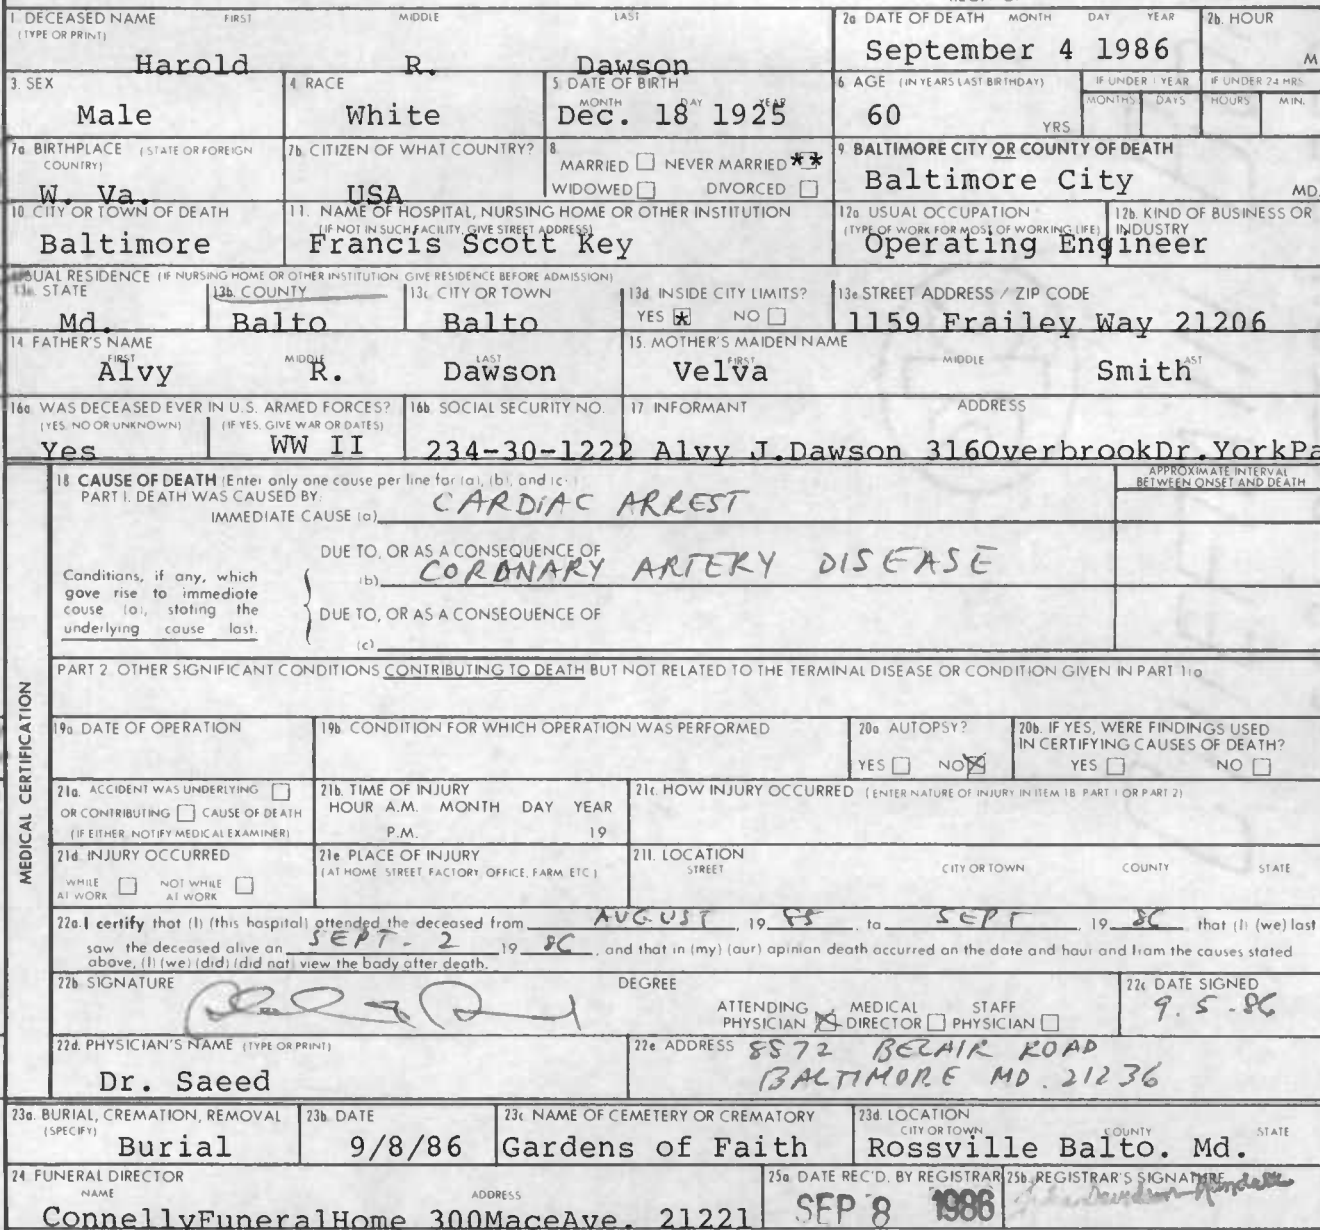 1 DECEASED NAME FIRST MIDDLE LAST
(TYPE OR PRINT)
Harold R. Dawson
2a DATE OF DEATH MONTH DAY YEAR
September 4 1986
2b. HOUR
M
3. SEX
Male
4 RACE
White
5 DATE OF BIRTH
MONTH DAY YEAR
Dec. 18 1925
6 AGE (IN YEARS LAST BIRTHDAY)
60 YRS
IF UNDER 1 YEAR
MONTHS DAYS
IF UNDER 24 HRS
HOURS MIN.
7a BIRTHPLACE (STATE OR FOREIGN
COUNTRY)
W. Va.
7b CITIZEN OF WHAT COUNTRY?
USA
8
MARRIED NEVER MARRIED **
WIDOWED DIVORCED
9 BALTIMORE CITY OR COUNTY OF DEATH
Baltimore City MD.
10 CITY OR TOWN OF DEATH
Baltimore
11. NAME OF HOSPITAL, NURSING HOME OR OTHER INSTITUTION
(IF NOT IN SUCH FACILITY, GIVE STREET ADDRESS)
Francis Scott Key
12a USUAL OCCUPATION
(TYPE OF WORK FOR MOST OF WORKING LIFE)
Operating Engineer
12b. KIND OF BUSINESS OR
INDUSTRY
USUAL RESIDENCE (IF NURSING HOME OR OTHER INSTITUTION GIVE RESIDENCE BEFORE ADMISSION)
13a. STATE
Md.
13b. COUNTY
Balto
13c CITY OR TOWN
Balto
13d INSIDE CITY LIMITS?
YES * NO
13e STREET ADDRESS / ZIP CODE
1159 Frailey Way 21206
14 FATHER'S NAME
FIRST MIDDLE LAST
Alvy R. Dawson
15. MOTHER'S MAIDEN NAME
FIRST MIDDLE LAST
Velva Smith
16a WAS DECEASED EVER IN U.S. ARMED FORCES?
(YES, NO OR UNKNOWN) (IF YES, GIVE WAR OR DATES)
Yes WW II
16b. SOCIAL SECURITY NO.
234-30-1222
17 INFORMANT ADDRESS
Alvy J.Dawson 316OverbrookDr.YorkPa
MEDICAL CERTIFICATION
18 CAUSE OF DEATH (Enter only one cause per line for (a), (b), and (c).
PART I. DEATH WAS CAUSED BY:
IMMEDIATE CAUSE (a) CARDIAC ARREST
APPROXIMATE INTERVAL
BETWEEN ONSET AND DEATH
Conditions, if any, which
gove rise to immediate
couse (a), stating the
underlying cause last.
DUE TO, OR AS A CONSEQUENCE OF
(b) CORONARY ARTERY DISEASE
DUE TO, OR AS A CONSEQUENCE OF
(c)
PART 2 OTHER SIGNIFICANT CONDITIONS CONTRIBUTING TO DEATH BUT NOT RELATED TO THE TERMINAL DISEASE OR CONDITION GIVEN IN PART 1(a
19a DATE OF OPERATION
19b CONDITION FOR WHICH OPERATION WAS PERFORMED
20a AUTOPSY?
YES NO X
20b. IF YES, WERE FINDINGS USED
IN CERTIFYING CAUSES OF DEATH?
YES NO
21a. ACCIDENT WAS UNDERLYING
OR CONTRIBUTING CAUSE OF DEATH
(IF EITHER, NOTIFY MEDICAL EXAMINER)
21b. TIME OF INJURY
HOUR A.M. MONTH DAY YEAR
P.M. 19
21c. HOW INJURY OCCURRED (ENTER NATURE OF INJURY IN ITEM 18 PART 1 OR PART 2)
21d INJURY OCCURRED
WHILE AT WORK NOT WHILE AT WORK
21e PLACE OF INJURY
(AT HOME STREET FACTORY, OFFICE, FARM ETC)
21f. LOCATION
STREET CITY OR TOWN COUNTY STATE
22a. I certify that (I) (this hospital) attended the deceased from AUGUST, 19 85 to SEPT, 19 86 that (I) (we) last
saw the deceased alive on SEPT. 2 19 86, and that in (my) (our) opinion death occurred on the date and hour and from the causes stated
above, (I) (we) (did) (did not) view the body after death.
22b SIGNATURE
DEGREE
ATTENDING PHYSICIAN X MEDICAL DIRECTOR STAFF PHYSICIAN
22c DATE SIGNED
9.5.86
22d. PHYSICIAN'S NAME (TYPE OR PRINT)
Dr. Saeed
22e ADDRESS 8872 BELAIR ROAD
BALTIMORE MD. 21236
23a. BURIAL, CREMATION, REMOVAL
(SPECIFY)
Burial
23b. DATE
9/8/86
23c NAME OF CEMETERY OR CREMATORY
Gardens of Faith
23d. LOCATION
CITY OR TOWN COUNTY STATE
Rossville Balto. Md.
24 FUNERAL DIRECTOR
NAME ADDRESS
ConnellyFuneralHome 300MaceAve. 21221
25a DATE REC'D. BY REGISTRAR
SEP 8 1986
25b. REGISTRAR'S SIGNATURE